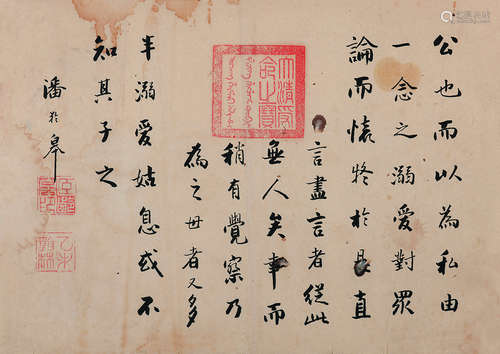 公也而以為私由
一念之溺愛對眾
論而懷於是直
言盡言者從此
無人矣事而
稍有覺察乃
為之母者又多
半溺愛姑息或不
知其子之
潘齡皋
大清受命之寶
乙未翰林